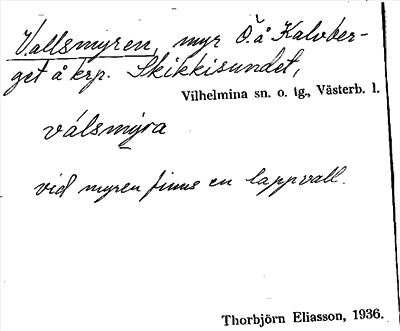 Vallsmyren, myr Ö. å Kalvber-
get å krp. Skikkisundet,
Vilhelmina sn. o. tg., Västerb. l.
válsmyra
vid myren finns en lappvall.
Thorbjörn Eliasson, 1936.